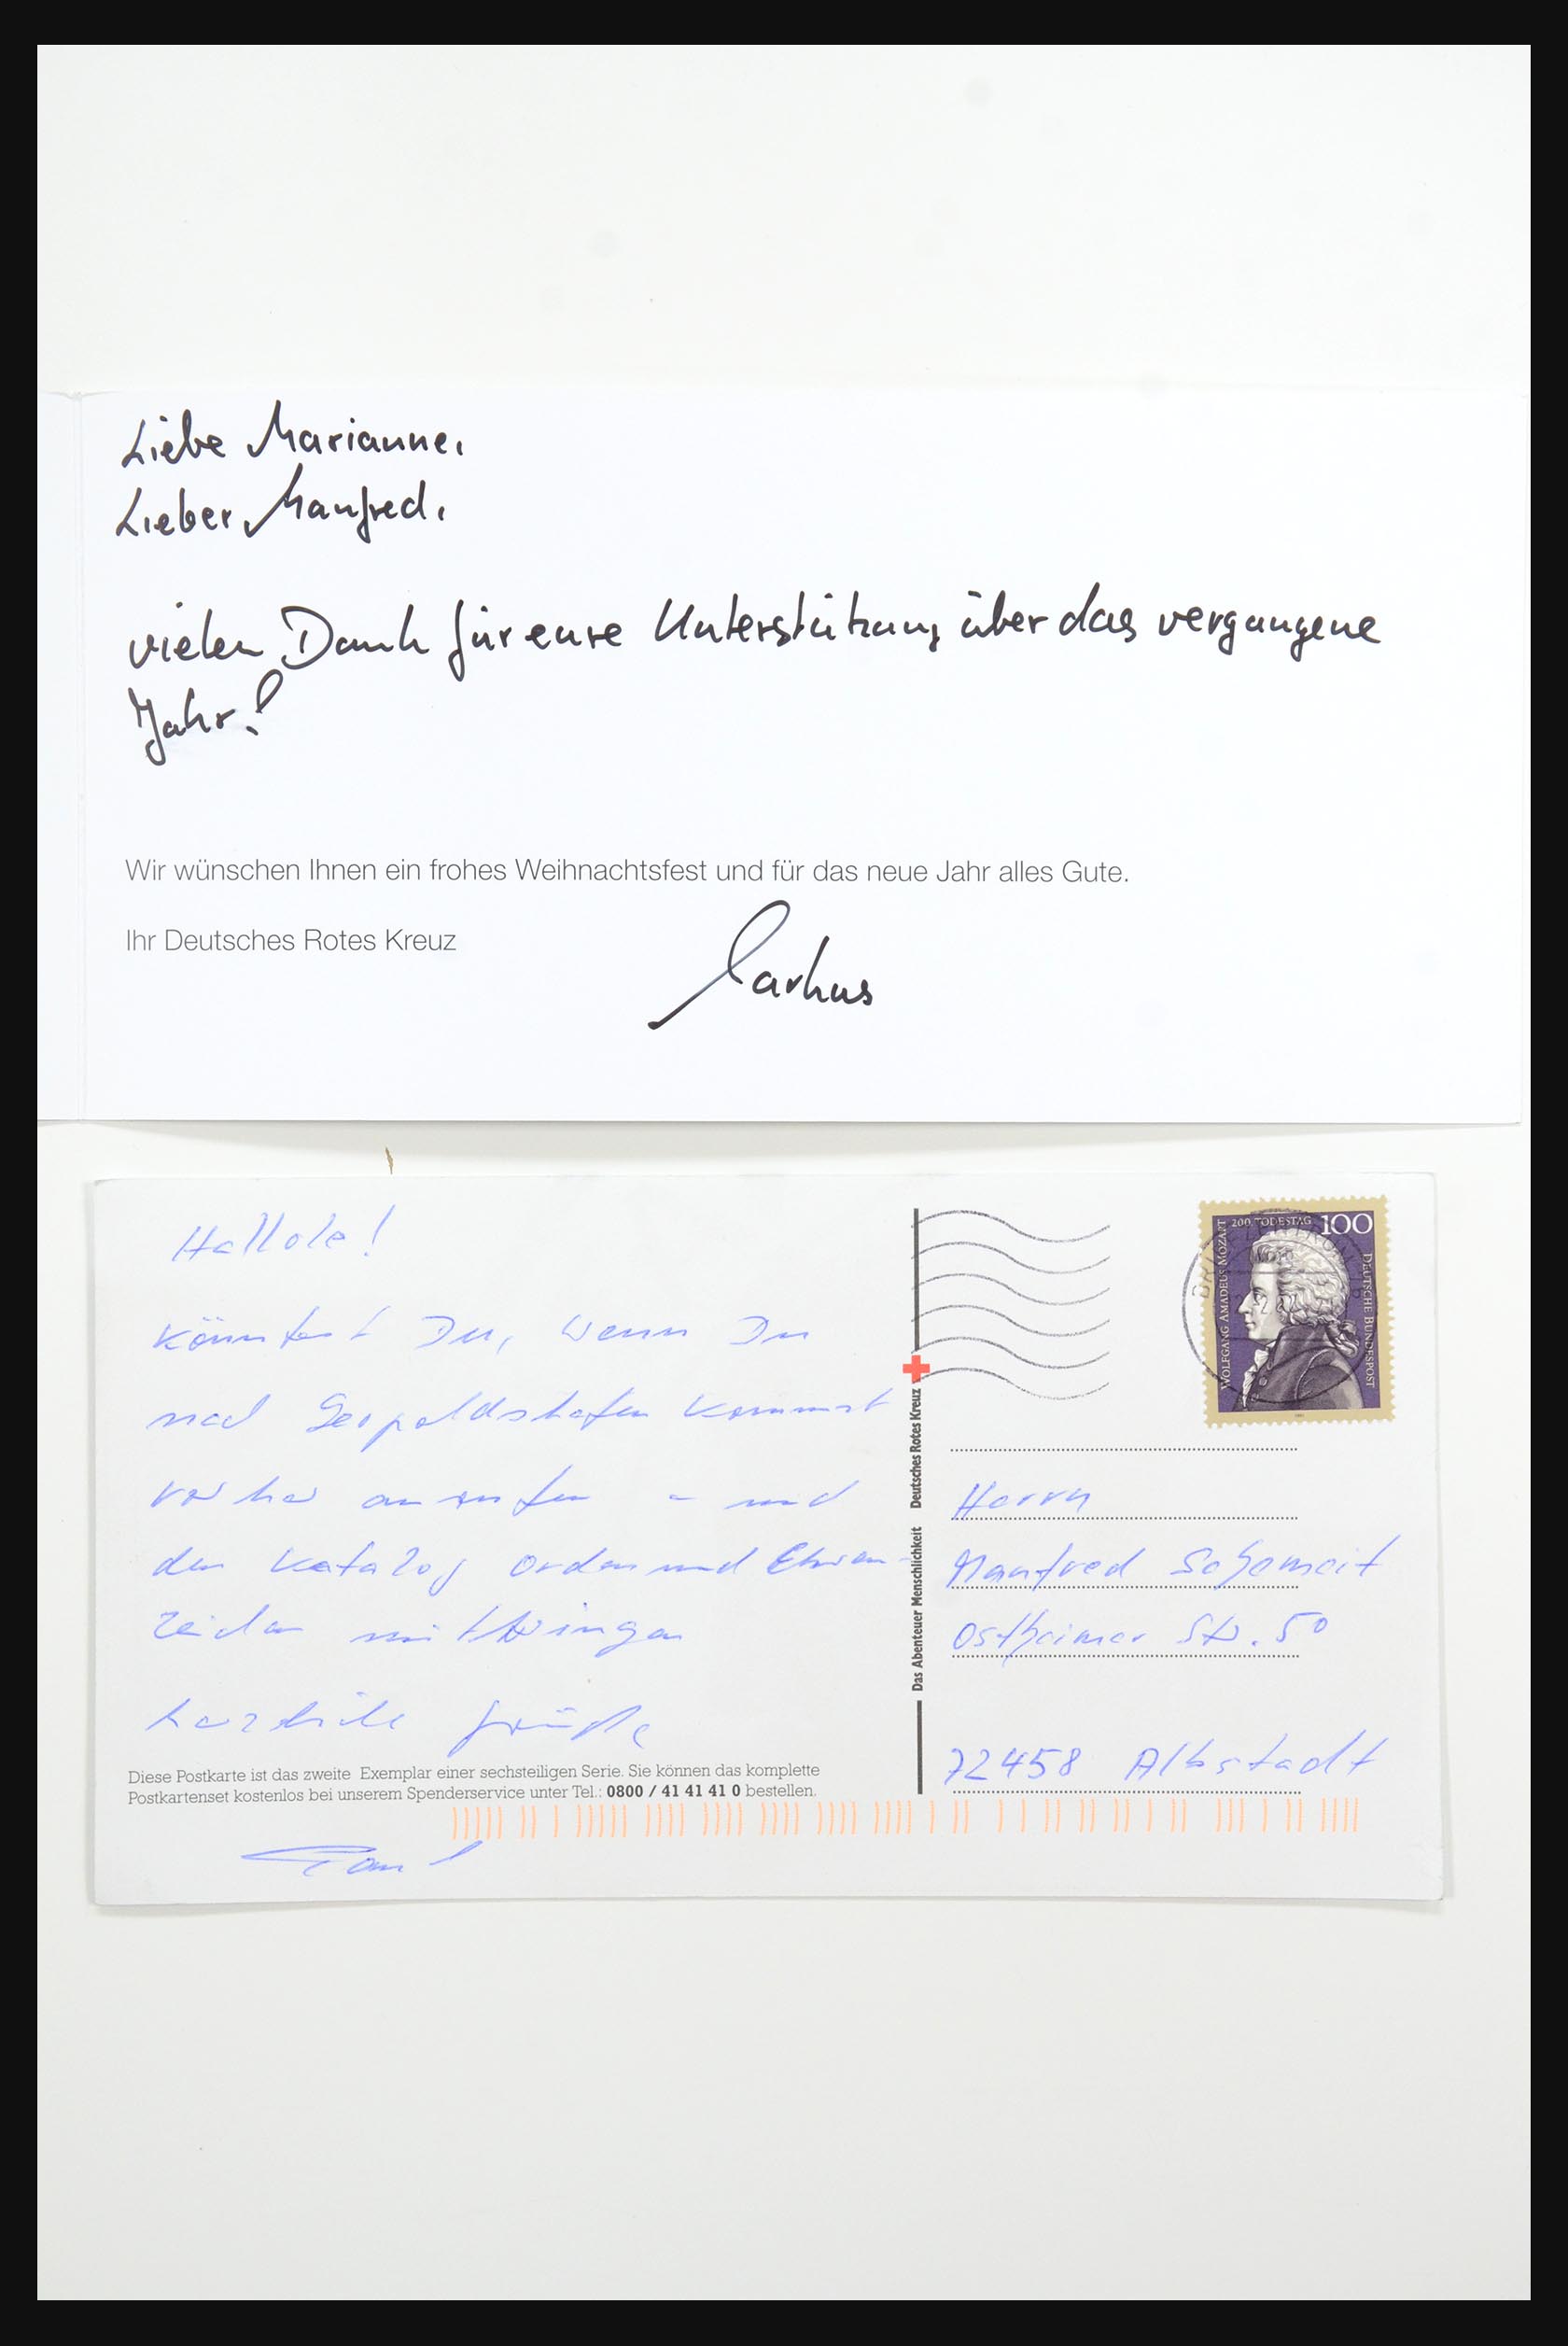 Liebe Marianne,
Lieber Manfred,
vielen Dank für eure Unterstützung über das vergangene
Jahr!
Wir wünschen Ihnen ein frohes Weihnachtsfest und für das neue Jahr alles Gute.
Ihr Deutsches Rotes Kreuz
Markus
Hallole!
könntest Du, wenn Du
nach Leopoldshafen kommst
vorher anrufen - und
den Katalog Orden und Ehren-
zeichen mitbringen
herzliche Grüße
Diese Postkarte ist das zweite Exemplar einer sechsteiligen Serie. Sie können das komplette
Postkartenset kostenlos bei unserem Spenderservice unter Tel.: 0800 / 41 41 41 0 bestellen.
Paul
Das Abenteuer Menschlichkeit Deutsches Rotes Kreuz
WOLFGANG AMADEUS MOZART
200. TODESTAG 100
DEUTSCHE BUNDESPOST
Herrn
Manfred
Ostheimer Str. 50
72458 Albstadt